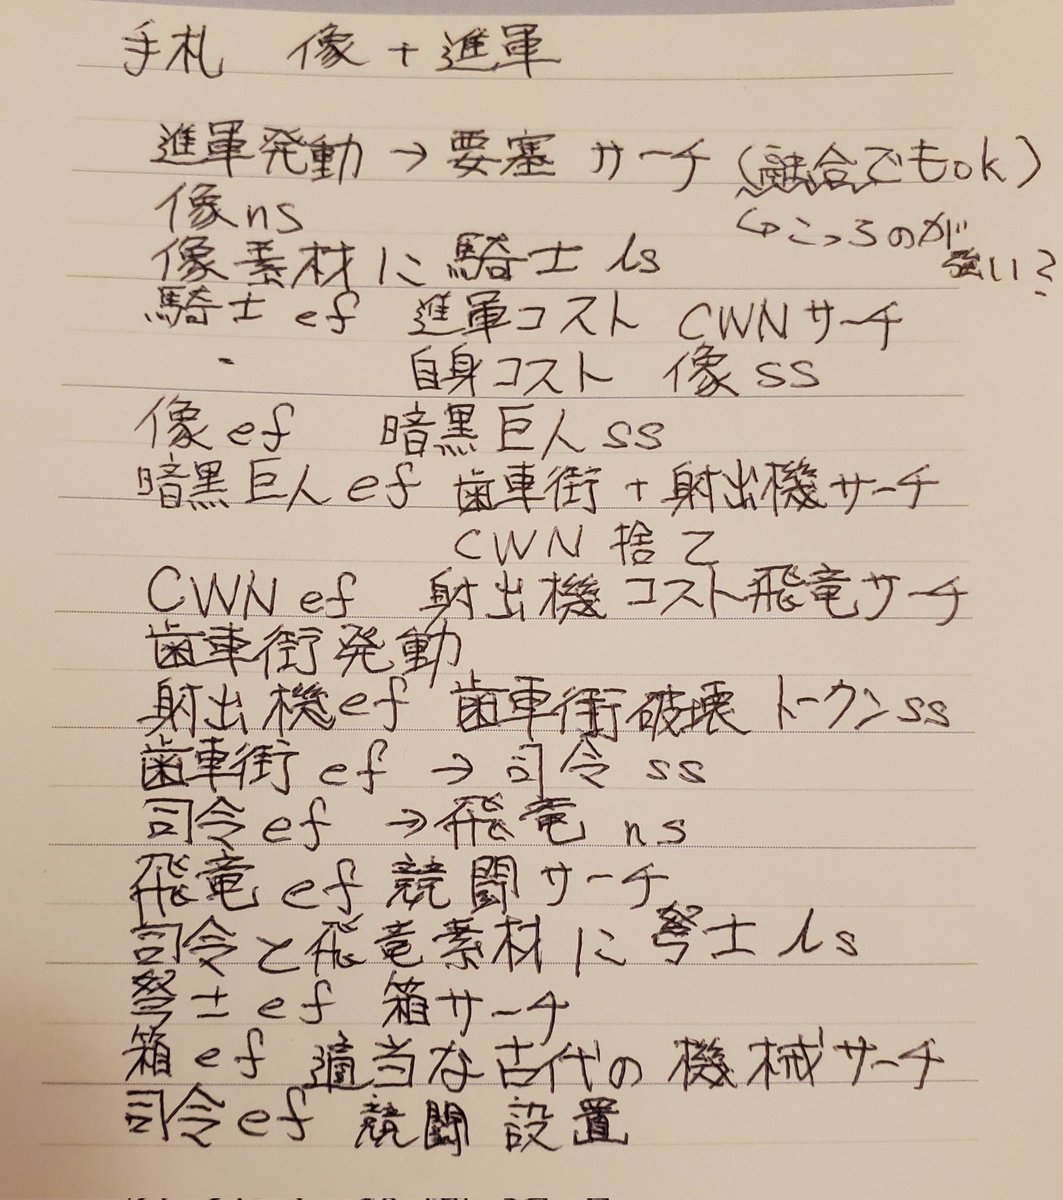 手札 像+進軍
進軍発動→要塞サーチ(融合でもok)
像ns
↪こっちのが
強い?
像素材に騎士ls
騎士ef 進軍コスト CWNサーチ
〃 自身コスト 像ss
像ef 暗黒巨人ss
暗黒巨人ef 歯車街+射出機サーチ
CWN捨て
CWNef 射出機コスト飛竜サーチ
歯車街発動
射出機ef 歯車街破壊 トークンss
歯車街ef →司令ss
司令ef →飛竜ns
飛竜ef 競闘サーチ
司令と飛竜素材に弩士ls
弩士ef 箱サーチ
箱ef 適当な古代の機械サーチ
司令ef 競闘 設置